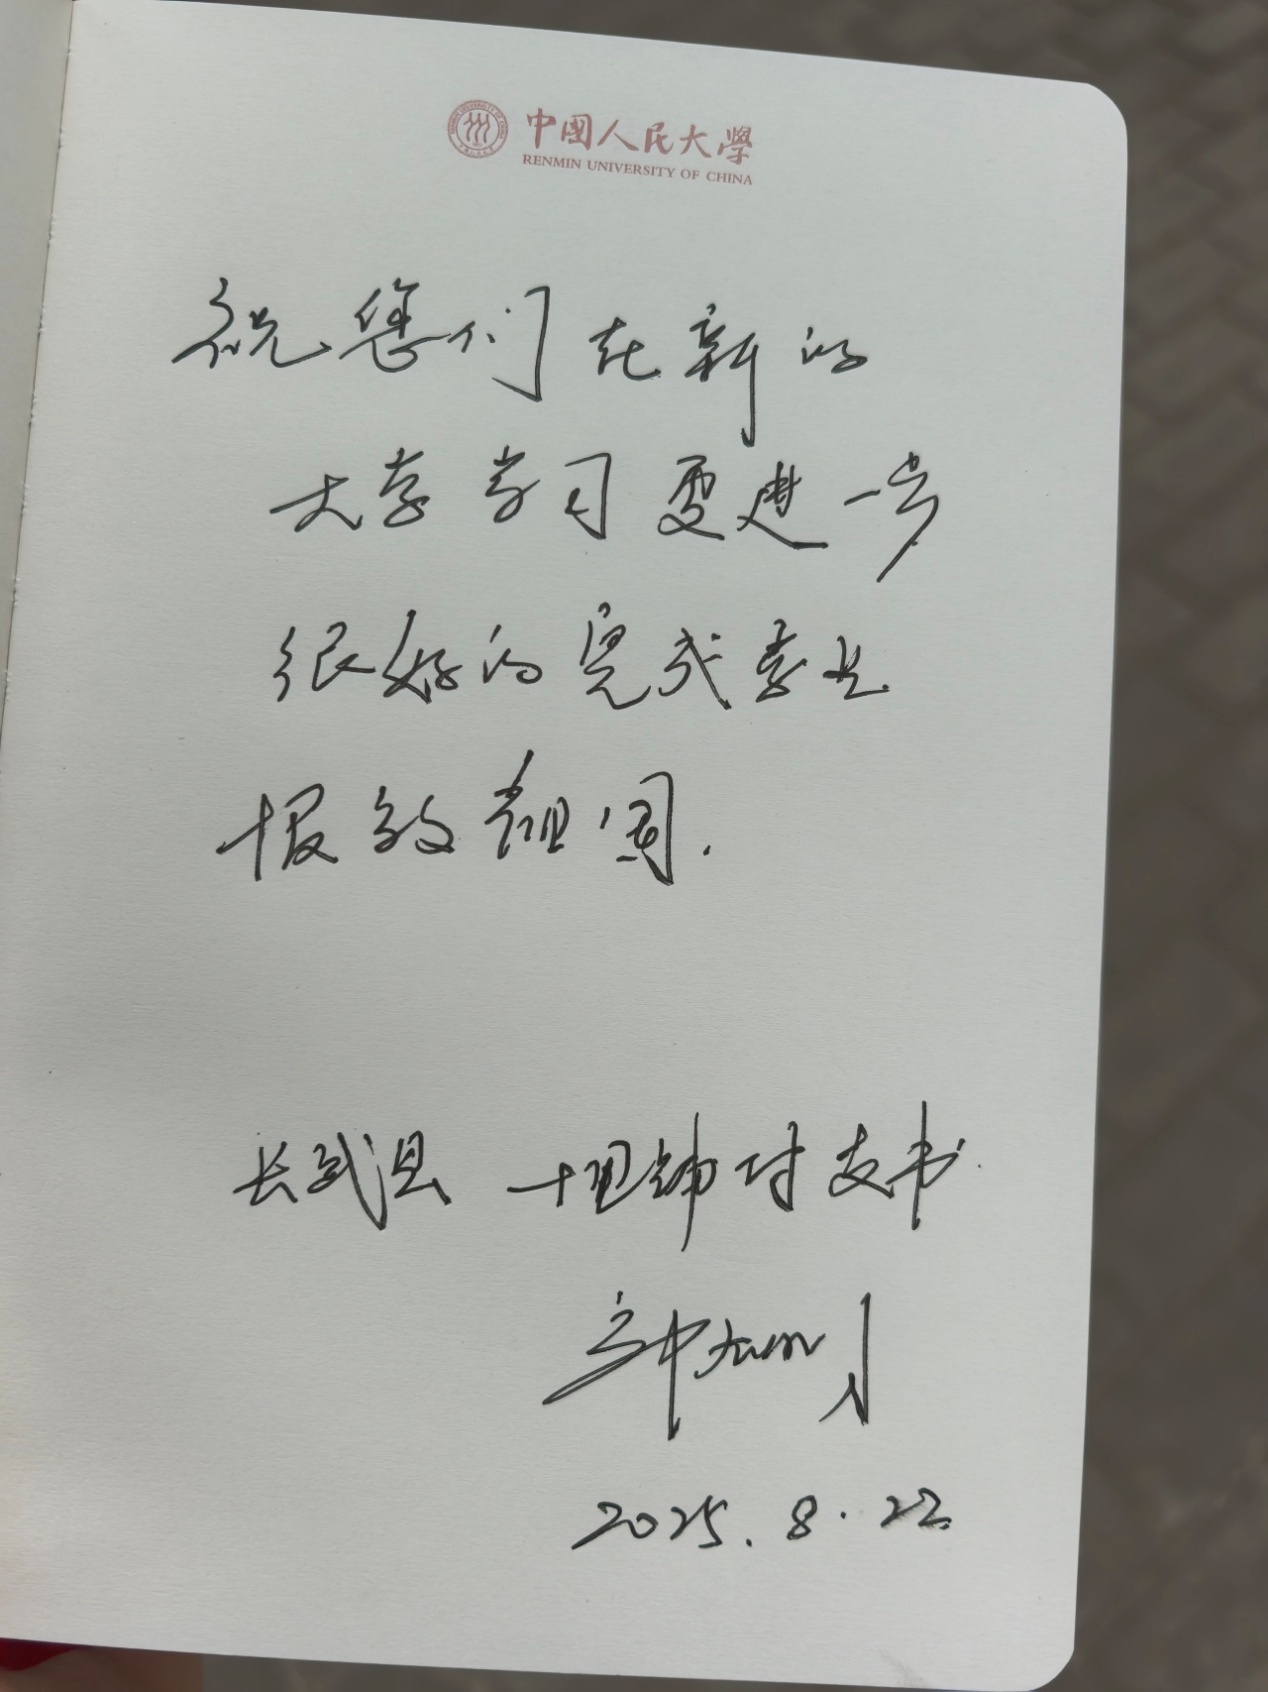 中國人民大學
RENMIN UNIVERSITY OF CHINA
祝您们在新的
大学学习更进一步
很好的完成学业
报效祖国.
长武县 十里铺村支书
2025.8.22